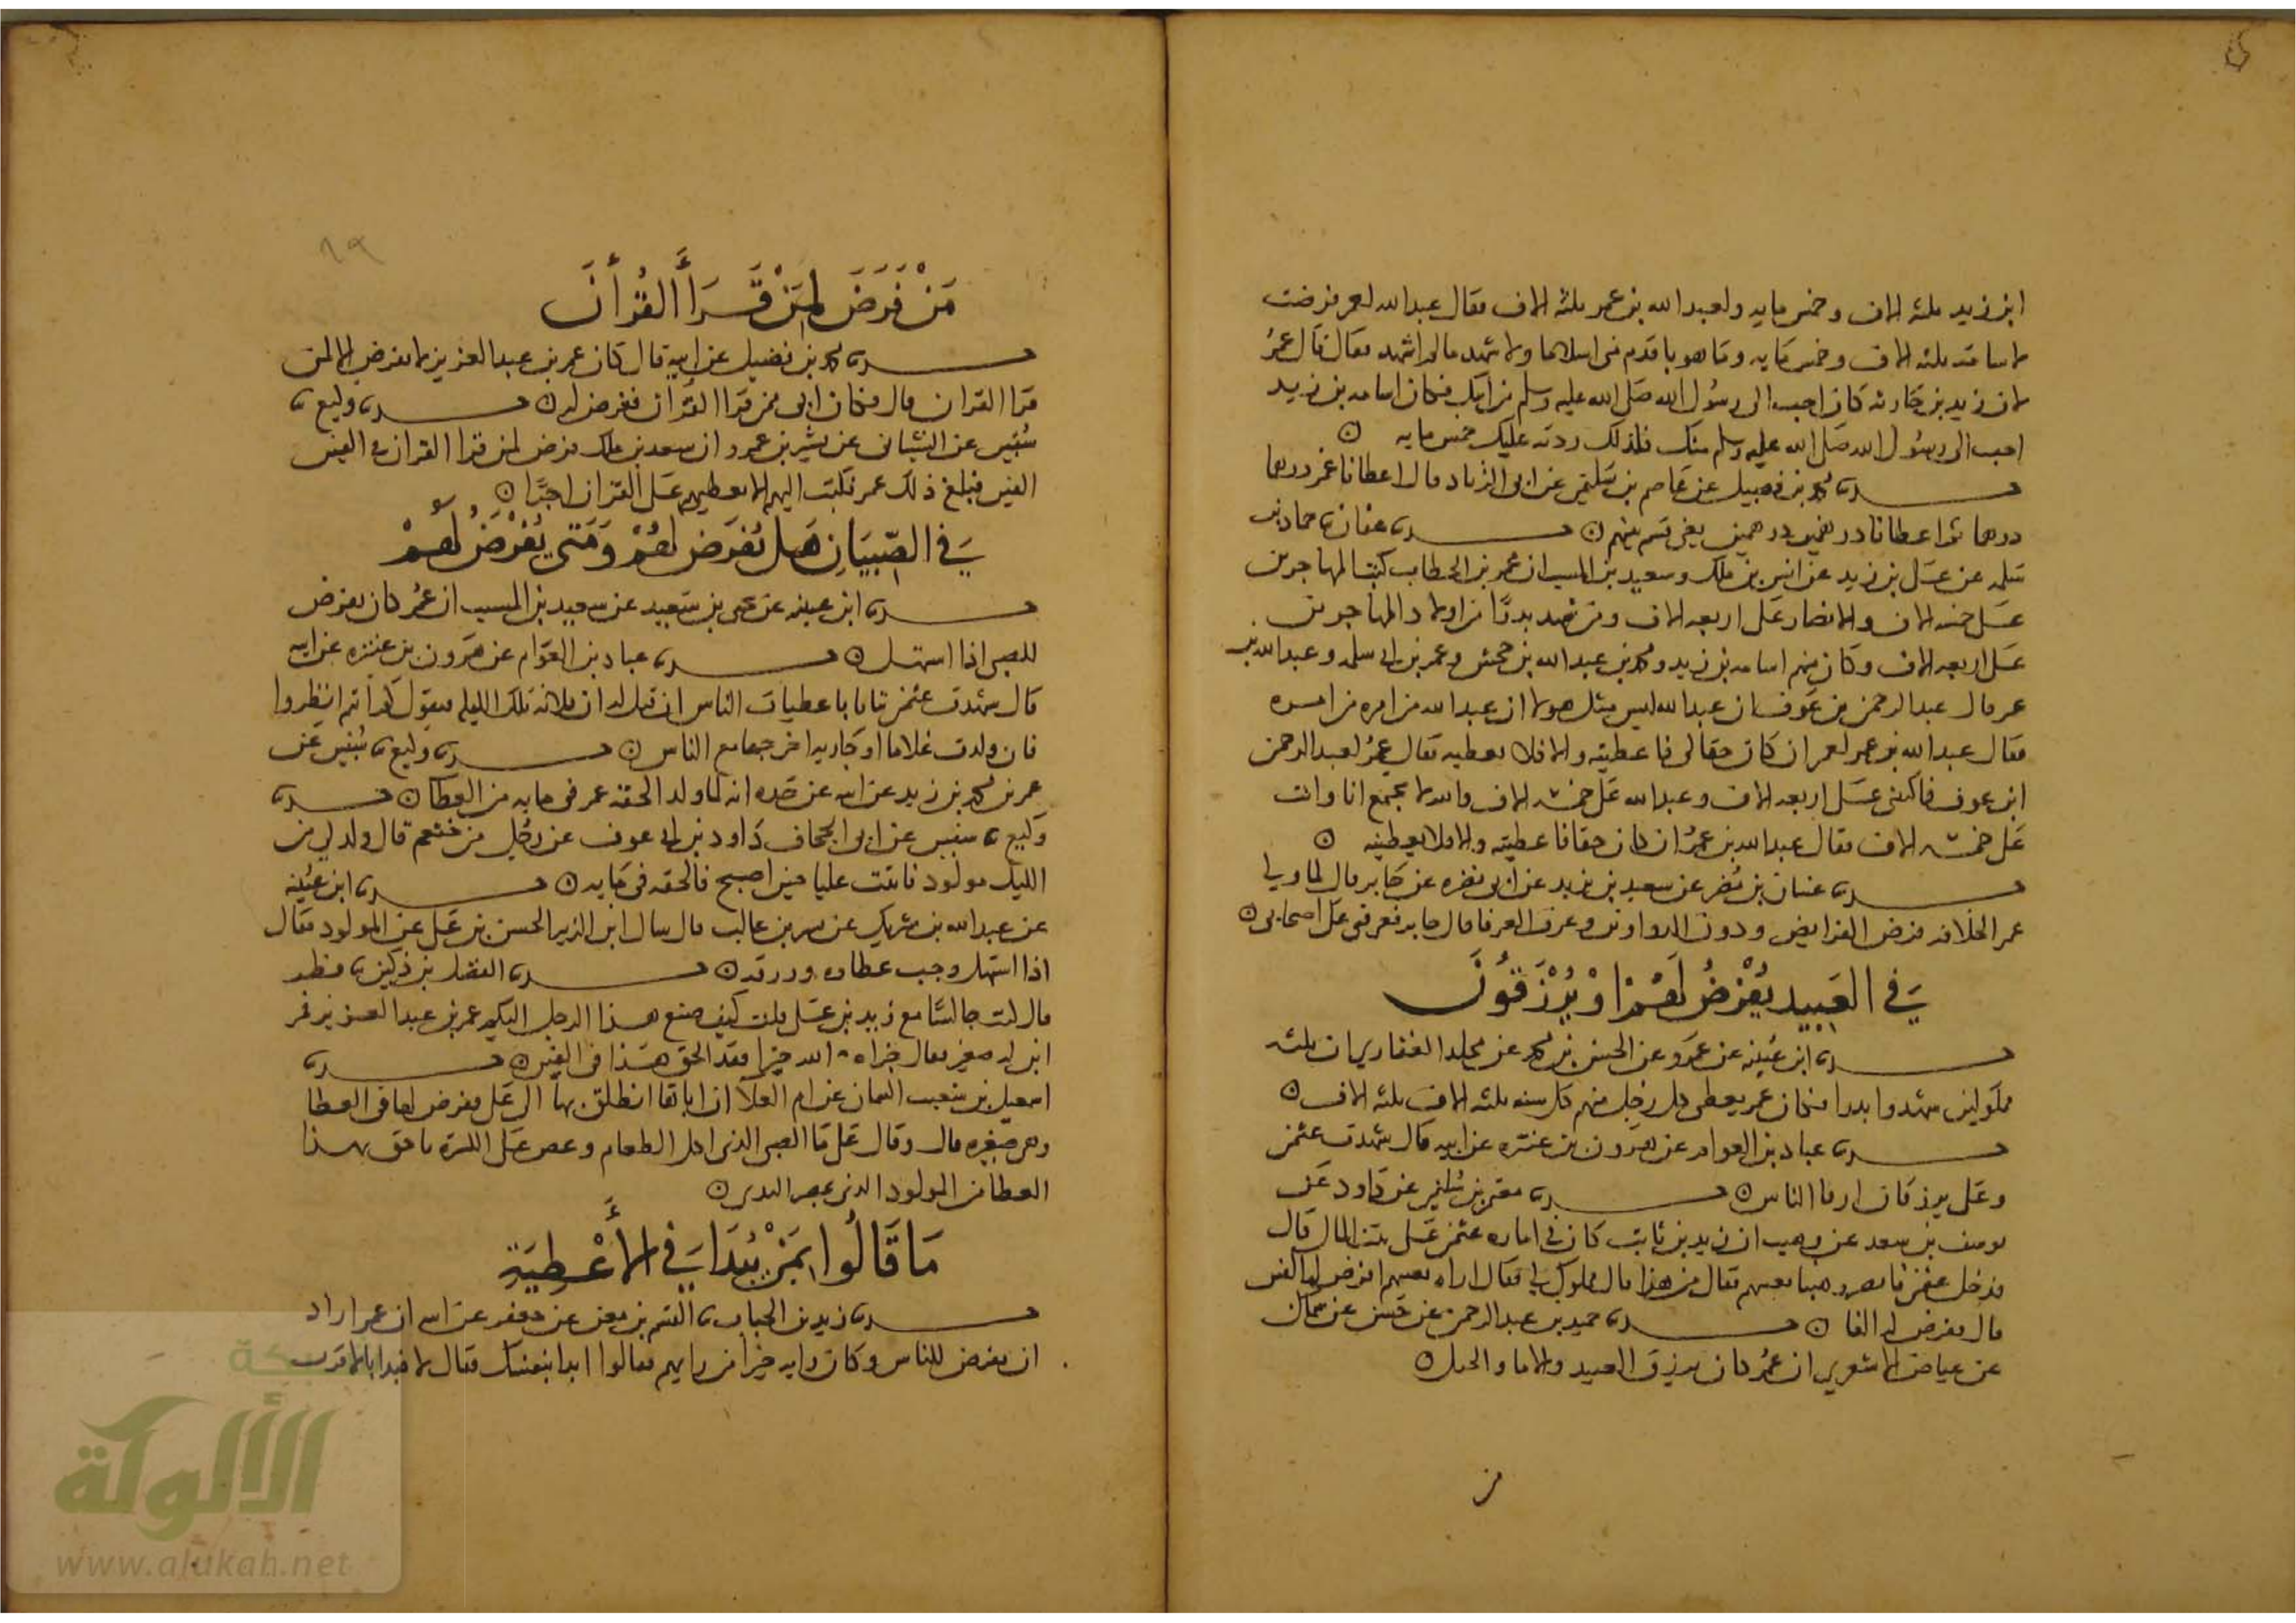 ابن زيد ثلثة الاف وخمس مايه ولعبد الله بن عمر ثلثة الاف فقال عبد الله لعمر فرضت
لاسامة ثلثه الاف وخمس مايه وما هو باقدم مني اسلاما ولا شهد ما لم اشهد فقال قال عمر
لان زيد بن حارثه كان احب الى رسول الله صلى الله عليه وسلم من ابيك فكان اسامه بن زيد
احب الى رسول الله صلى الله عليه وسلم منك فلذلك زدته عليك خمس مايه
محمد بن فضيل عن عاصم بن سليمن عن ابي الزناد قال اعطانا عمر درهما
درهما ثم اعطانا درهمين درهمين يعني قسم بينهم عفان نا حماد بن
سلمه عن علي بن زيد عن انس بن ملك وسعيد بن المسيب ان عمر بن الخطاب كتب المهاجرين
على خمسه الاف والانصار على اربعه الاف ومن شهد بدرا من اولاد المهاجرين
على اربعه الاف وكان منهم اسامه بن زيد ومحمد بن عبد الله بن جحش وعمر بن ابي سلمه وعبد الله بن
عمر قال عبد الرحمن بن عوف ان عبد الله ليس مثل هولا ان عبد الله من امره من امره
فقال عبد الله بن عمر لعمر ان كان حقا لي فاعطنيه والا فلا تعطنيه فقال عمر لعبد الرحمن
ابن عوف فاكتبني على اربعه الاف وعبد الله على خمسه الاف والله لا يجمع انا وانت
على خمسه الاف فقال عبد الله بن عمر ان كان حقا فاعطنيه والا فلا تعطنيه
غسان بن مضر عن سعيد بن يزيد عن ابي نضره عن جابر قال لما ولي
عمر الخلافه فرض الفرايض ودون الدواوين وعرف العرفا قال جابر فعرفني على اصحابي
في العبيد يفرض لهم او يرزقون
ابن عيينه عن عمرو عن الحسن بن محمد عن مخلد الغفاري ان ثلثه
مملوكين شهدوا بدرا فكان عمر يعطي كل رجل منهم كل سنه ثلثه الاف ثلثه الاف
عباد بن العوام عن هرون بن عنتره عن ابيه قال شهدت عثمن
وعلي يرزقان ارقا الناس معتمر بن سليمن عن داود عن
يوسف بن سعد عن وهيب ان زيد بن ثابت كان في اماره عثمن على بيت المال قال
فدخل عثمن فابصر وهيبا يعينهم فقال من هذا قال مملوك لي فقال اراه يعينهم افرض له الفين
قال ففرض له الفا حميد بن عبد الرحمن عن حسن عن سماك
عن عياض الاشعري ان عمر كان يرزق العبيد والاما والخيل
من
٦٩
من فرض لمن قرأ القرأن
محمد بن فضيل عن ابيه قال كان عمر بن عبد العزيز لا يفرض الا لمن
قرا القران قال فكان ابي ممن قرا القران ففرض له وكيع نا
سفين عن الشيباني عن يسير بن عمرو ان سعد بن ملك فرض لمن قرا القران في الفين
الفين فبلغ ذلك عمر فكتب اليهم الا تعطيهم على القران اجرا
في الصبيان هل يفرض لهم ومتى يفرض لهم
ابن عيينه عن يحيى بن سعيد عن سعيد بن المسيب ان عمر كان يفرض
للصبي اذا استهل عباد بن العوام عن هرون بن عنتره عن ابيه
قال شهدت عثمن يتانا باعطيات الناس ان قيل له ان فلانه تلك الليله فيقول كم انتم انظروا
فان ولدت غلاما او جاريه اخرجها مع الناس وكيع نا سفين عن
عمر بن محمد بن زيد عن ابيه عن جده انه لما ولد الحقه عمر في مايه من العطا
وكيع نا سفين عن ابي الجحاف داود بن ابي عوف عن رجل من خثعم قال ولد لي من
الليل مولود فاتيت عليا حين اصبح فالحقه في مايه ابن عيينه
عن عبد الله بن شريك عن بشر بن غالب قال سال ابن الزبير الحسن بن علي عن المولود فقال
اذا استهل وجب عطاوه ورزقه الفضل بن دكين نا فطر
قال كنت جالسا مع زيد بن علي قلت كيف صنع هذا الرجل اليكم عمر بن عبد العزيز فمر
ابن له صغير فقال جزاه الله خيرا فقد الحق هذا في الفين
اسمعيل بن شعيب السمان عن ام العلا ان اباها انطلق بها الى علي ففرض لها في العطا
وهي صغيره قال وقال علي ما الصبي الذي اكل الطعام وعض على الكسرة باحق بهذا
العطا من المولود الذي يمص الثدي
ما قالوا بمن يبدا في الأعطية
زيد بن الحباب نا القسم بن معن عن جعفر عن ابيه ان عمر اراد
ان يفرض للناس وكان رايه خيرا من رايهم فقالوا ابدا بنفسك فقال لا فبدا بالاقرب
شبكة
الألوكة
www.alukah.net